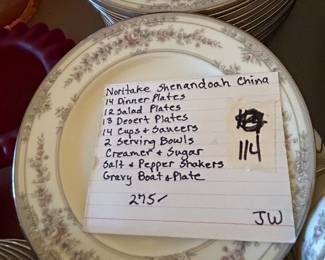 Noritake Shenandoah China
14 Dinner Plates
12 Salad Plates
13 Desert Plates
14 Cups & Saucers
2 Serving Bowls
Creamer & Sugar
Salt & Pepper Shakers
Gravy Boat & Plate
275
114
JW